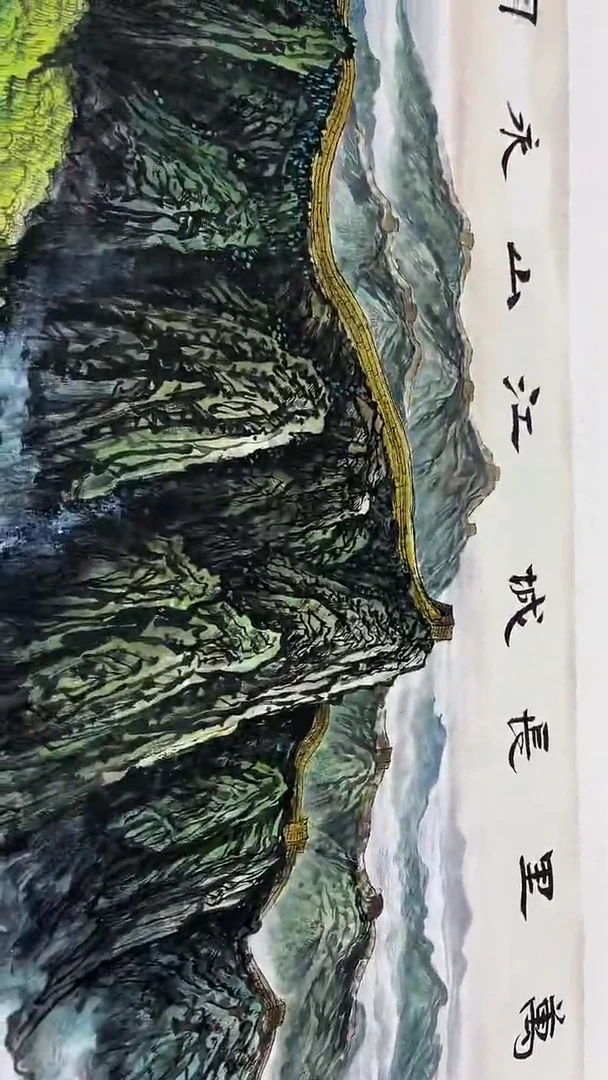 萬里長城江山永